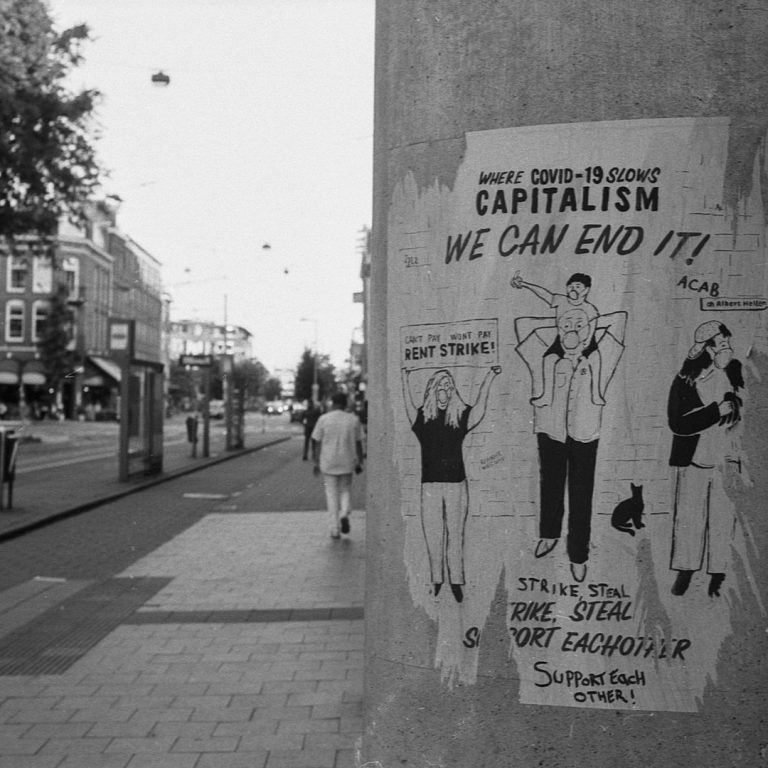 WHERE COVID-19 SLOWS
CAPITALISM
WE CAN END IT!
ACAB
ah Albert Heijn
CAN'T PAY WONT PAY
RENT STRIKE!
STRIKE, STEAL
RIKE, STEAL
SU PORT EACHOTHER
SUPPORT EACH
OTHER!